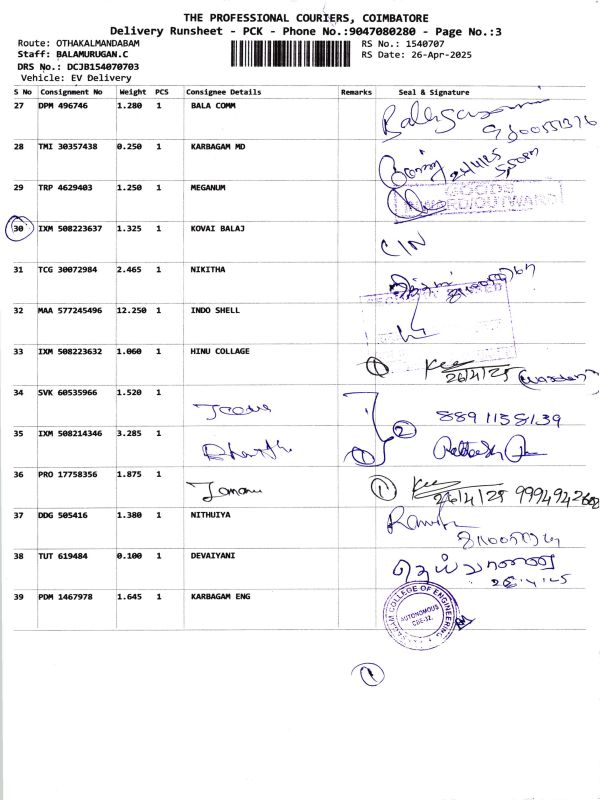 THE PROFESSIONAL COURIERS, COIMBATORE
Delivery Runsheet - PCK - Phone No.:9047080280 - Page No.:3
Route: OTHAKALMANDABAM
RS No.: 1540707
Staff: BALAMURUGAN.C
RS Date: 26-Apr-2025
DRS No.: DCJB154070703
Vehicle: EV Delivery
S No Consignment No Weight PCS Consignee Details Remarks Seal & Signature
27 DPM 496746 1.280 1 BALA COMM
28 TMI 30357438 0.250 1 KARBAGAM MD
29 TRP 4629403 1.250 1 MEGANUM
GOODS
INWARD/OUTWARD
30 IXM 508223637 1.325 1 KOVAI BALAJ
C/N
31 TCG 30072984 2.465 1 NIKITHA
32 MAA 577245496 12.250 1 INDO SHELL
33 IXM 508223632 1.060 1 HINU COLLAGE 1
26/4/25 (warden)
34 SVK 60535966 1.520 1
8891158139
35 IXM 508214346 3.285 1 1 2
36 PRO 17758356 1.875 1 1
26/4/25
37 DDG 505416 1.380 1 NITHUIYA
38 TUT 619484 0.100 1 DEVAIYANI
39 PDM 1467978 1.645 1 KARBAGAM ENG
COLLEGE OF ENGINEERING
AUTONOMOUS
CBE-32.
1